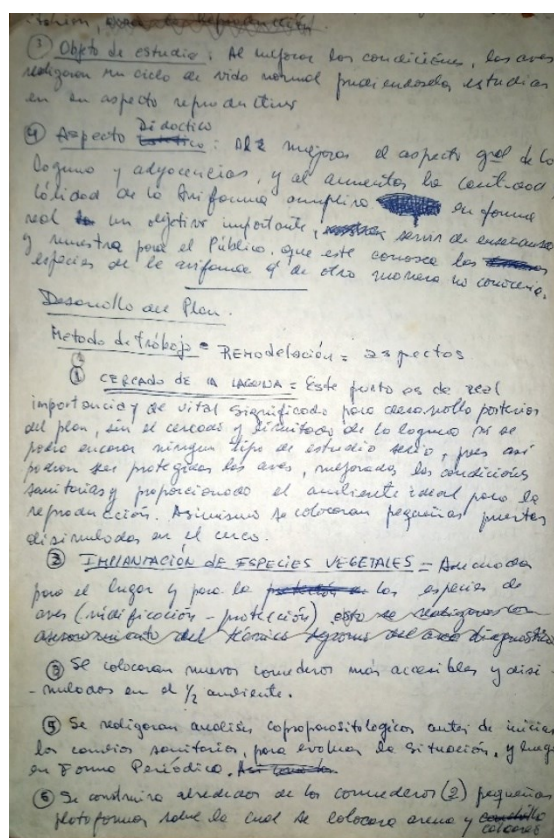 ③ Objeto de estudio: Al mejorar las condiciones, las aves
realizaran su ciclo de vida normal pudiendoselas estudiar
en su aspecto reproductivo
④ Aspecto Didactico: Al mejorar el aspecto gral de la
laguna y adyacencias, y al aumentar la cantidad
calidad de la Avifauna en forma
real un objetivo importante, servir de enseñanza
y muestra para el Público, que este conozca las
especies de la avifauna q de otra manera no conoceria.
Desarrollo del Plan.
Metodo de Trabajo = REMODELACIÓN = aspectos
① CERCADO DE LA LAGUNA = Este punto es de real
importancia y de vital significado para desarrollo posterior
del plan, sin el cercado y de la laguna no se
podra encarar ningun tipo de estudio serio, pues asi
podran ser protegidas las aves, mejoradas las condiciones
sanitarias y proporcionado el ambiente ideal para la
reproducción. Asimismo se colocaran pequeñas puertas
disimuladas en el cerco.
② IMPLANTACIÓN DE ESPECIES VEGETALES = Adecuadas
para el lugar y para las especies de
aves (nidificación - protección) esto se realizara con
asesoramiento del del area diagnostico
③ Se colocaran nuevos comederos más accesibles y disi-
-mulados en el 1/2 ambiente.
⑤ Se realizaran analisis coproparasitologicos antes de iniciar
los cambios sanitarios, para evaluar la situación, y luego
en Forma Periódica.
⑥ Se construira alrededor de los comederos (2) pequeñas
plataformas sobre la cual se colocara arena y